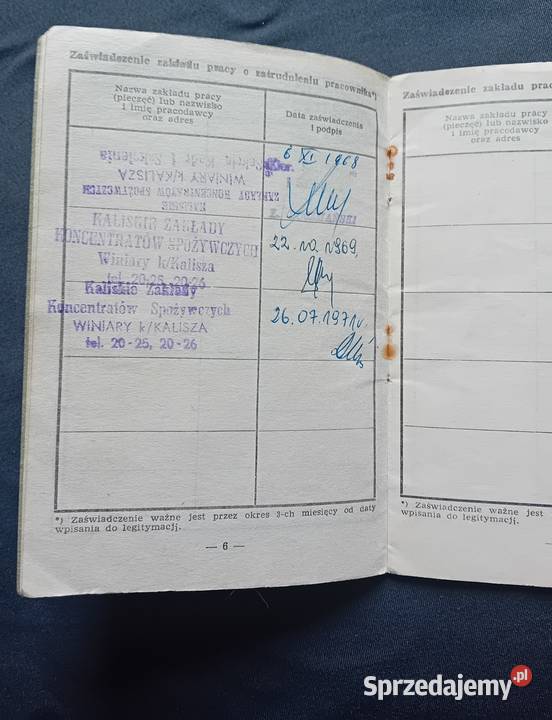 Zaświadczenie zakładu pracy o zatrudnieniu pracownika*)
Nazwa zakładu pracy
(pieczęć) lub nazwisko
i imię pracodawcy
oraz adres
Data zaświadczenia
i podpis
6 XI 1968
WINIARY k/KALISZA
ZAKŁADY KONCENTRATÓW SPOŻYWCZYCH
KALISKIE
KALISKIE ZAKŁADY
KONCENTRATÓW SPOŻYWCZYCH
Winiary k/Kalisza
tel. 20-25, 20-26
22. VII 1969,
Kaliskie Zakłady
Koncentratów Spożywczych
WINIARY k/KALISZA
tel. 20-25, 20-26
26.07.1971r.
*) Zaświadczenie ważne jest przez okres 3-ch miesięcy od daty
wpisania do legitymacji.
— 6 —
Zaświadczenie zakładu prac
Nazwa zakładu pracy
(pieczęć) lub nazwisko
i imię pracodawcy
oraz adres
*) Zaświadczenie ważne jest
wpisania do legitymacji.
Sprzedajemy.pl